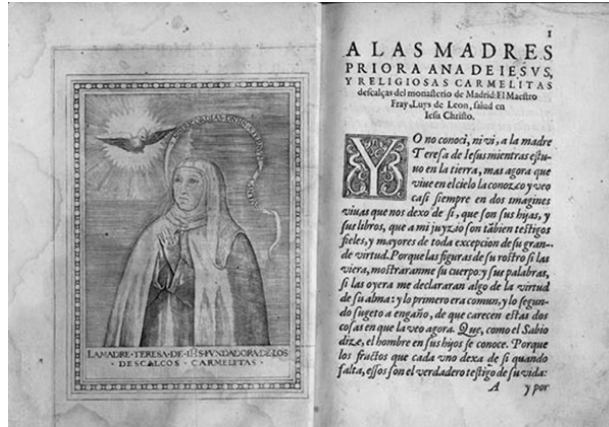 LA MADRE · TERESA · DE · IHS · FVNDADORA DE LOS
· DESCALCOS · CARMELITAS ·
1
A LAS MADRES
PRIORA ANA DE IESVS,
Y RELIGIOSAS CARMELITAS
descalças del monasterio de Madrid El Maestro
Fray Luys de Leon, salud en
Iesu Christo.
YO no conoci, ni vi, a la madre
Teresa de Iesus mientras estu-
uo en la tierra, mas agora que
viue en el cielo la conozco y veo
casi siempre en dos imagines
viuas que nos dexo de si, que son sus hijas, y
sus libros, que a mi juyzio son tãbien testigos
fieles, y mayores de toda excepcion de su gran-
de virtud. Porque las figuras de su rostro si las
viera, mostraranme su cuerpo: y sus palabras,
si las oyera me declararan algo de la virtud
de su alma: y lo primero era comun, y lo segun-
do sugeto a engaño, de que carecen estas dos
cosas en que la veo agora. Que, como el Sabio
dize, el hombre en sus hijos se conoce. Porque
los fructos que cada vno dexa de si quando
falta, essos son el verdadero testigo de su vida:
A y por